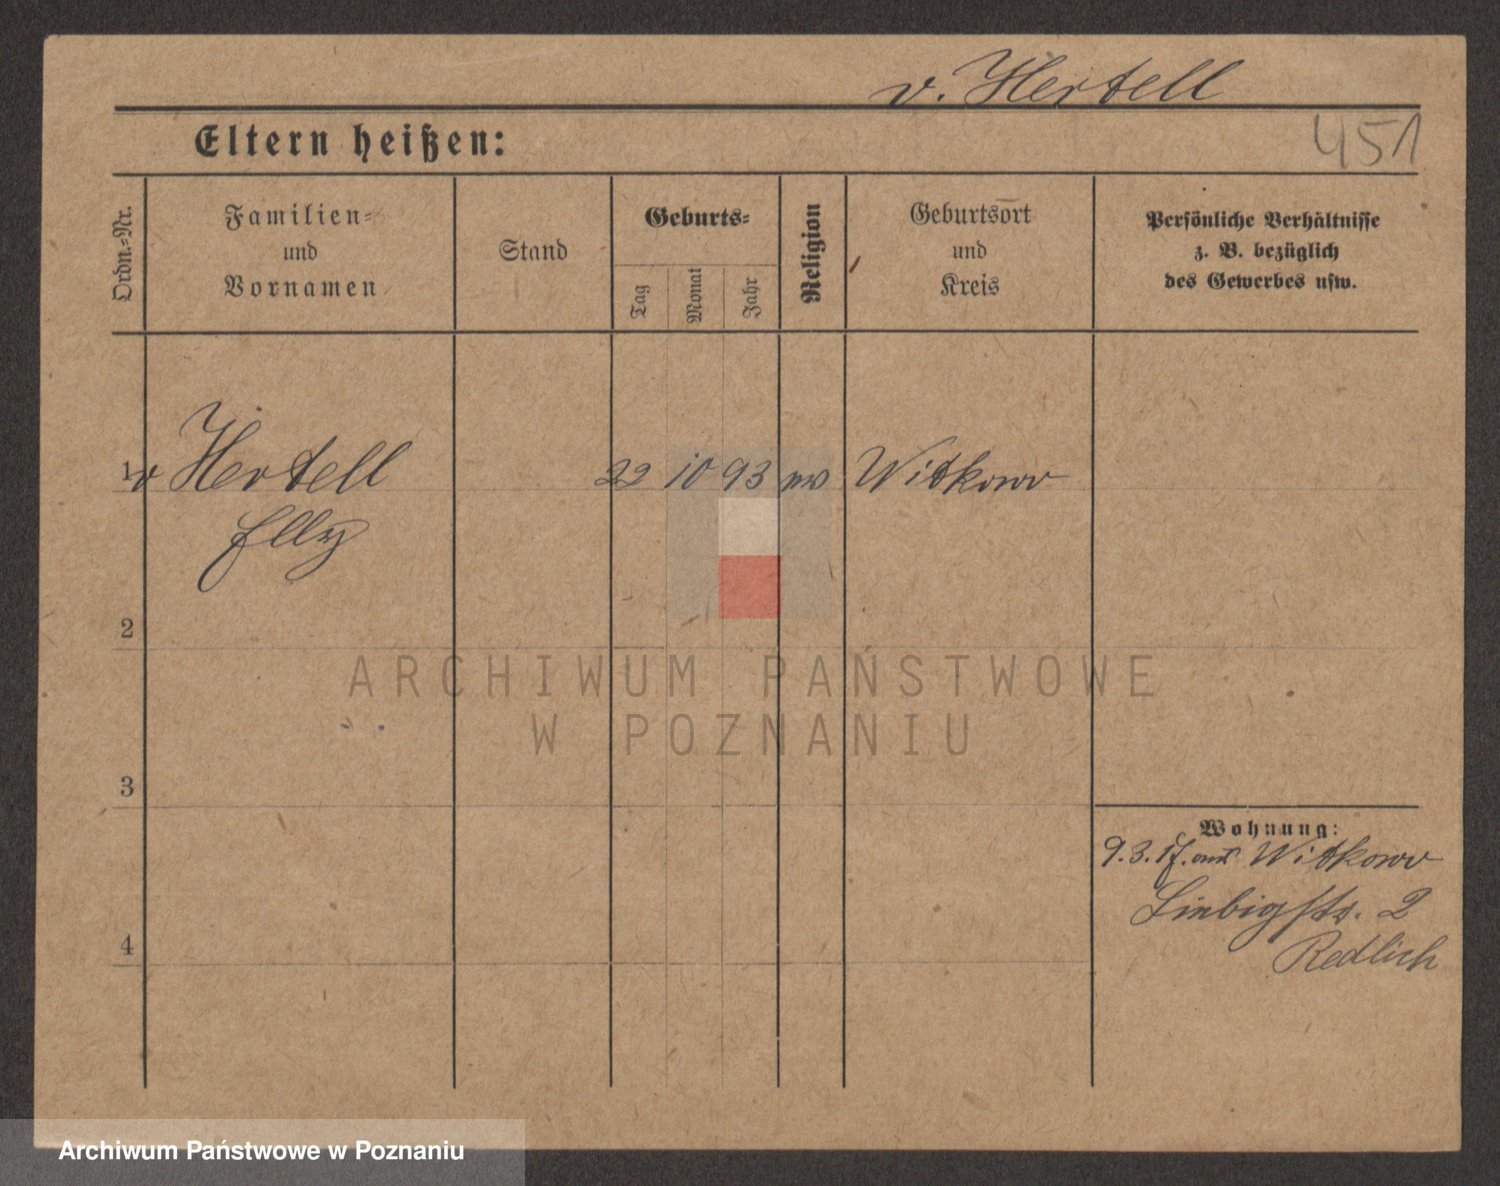 v. Hertell
Eltern heißen:
451
Ordn.=Nr.
Familien=
und
Vornamen
Stand
Geburts=
Tag
Monat
Jahr
Religion
Geburtsort
und
Kreis
Persönliche Verhältnisse
z. B. bezüglich
des Gewerbes usw.
1 v Hertell 22 10 93 ev Witkowo
Elly
2
ARCHIWUM PAŃSTWOWE
W POZNANIU
3
Wohnung:
9.3.17. aus Witkowo
Liebigstr. 2
4
Redlich
Archiwum Państwowe w Poznaniu